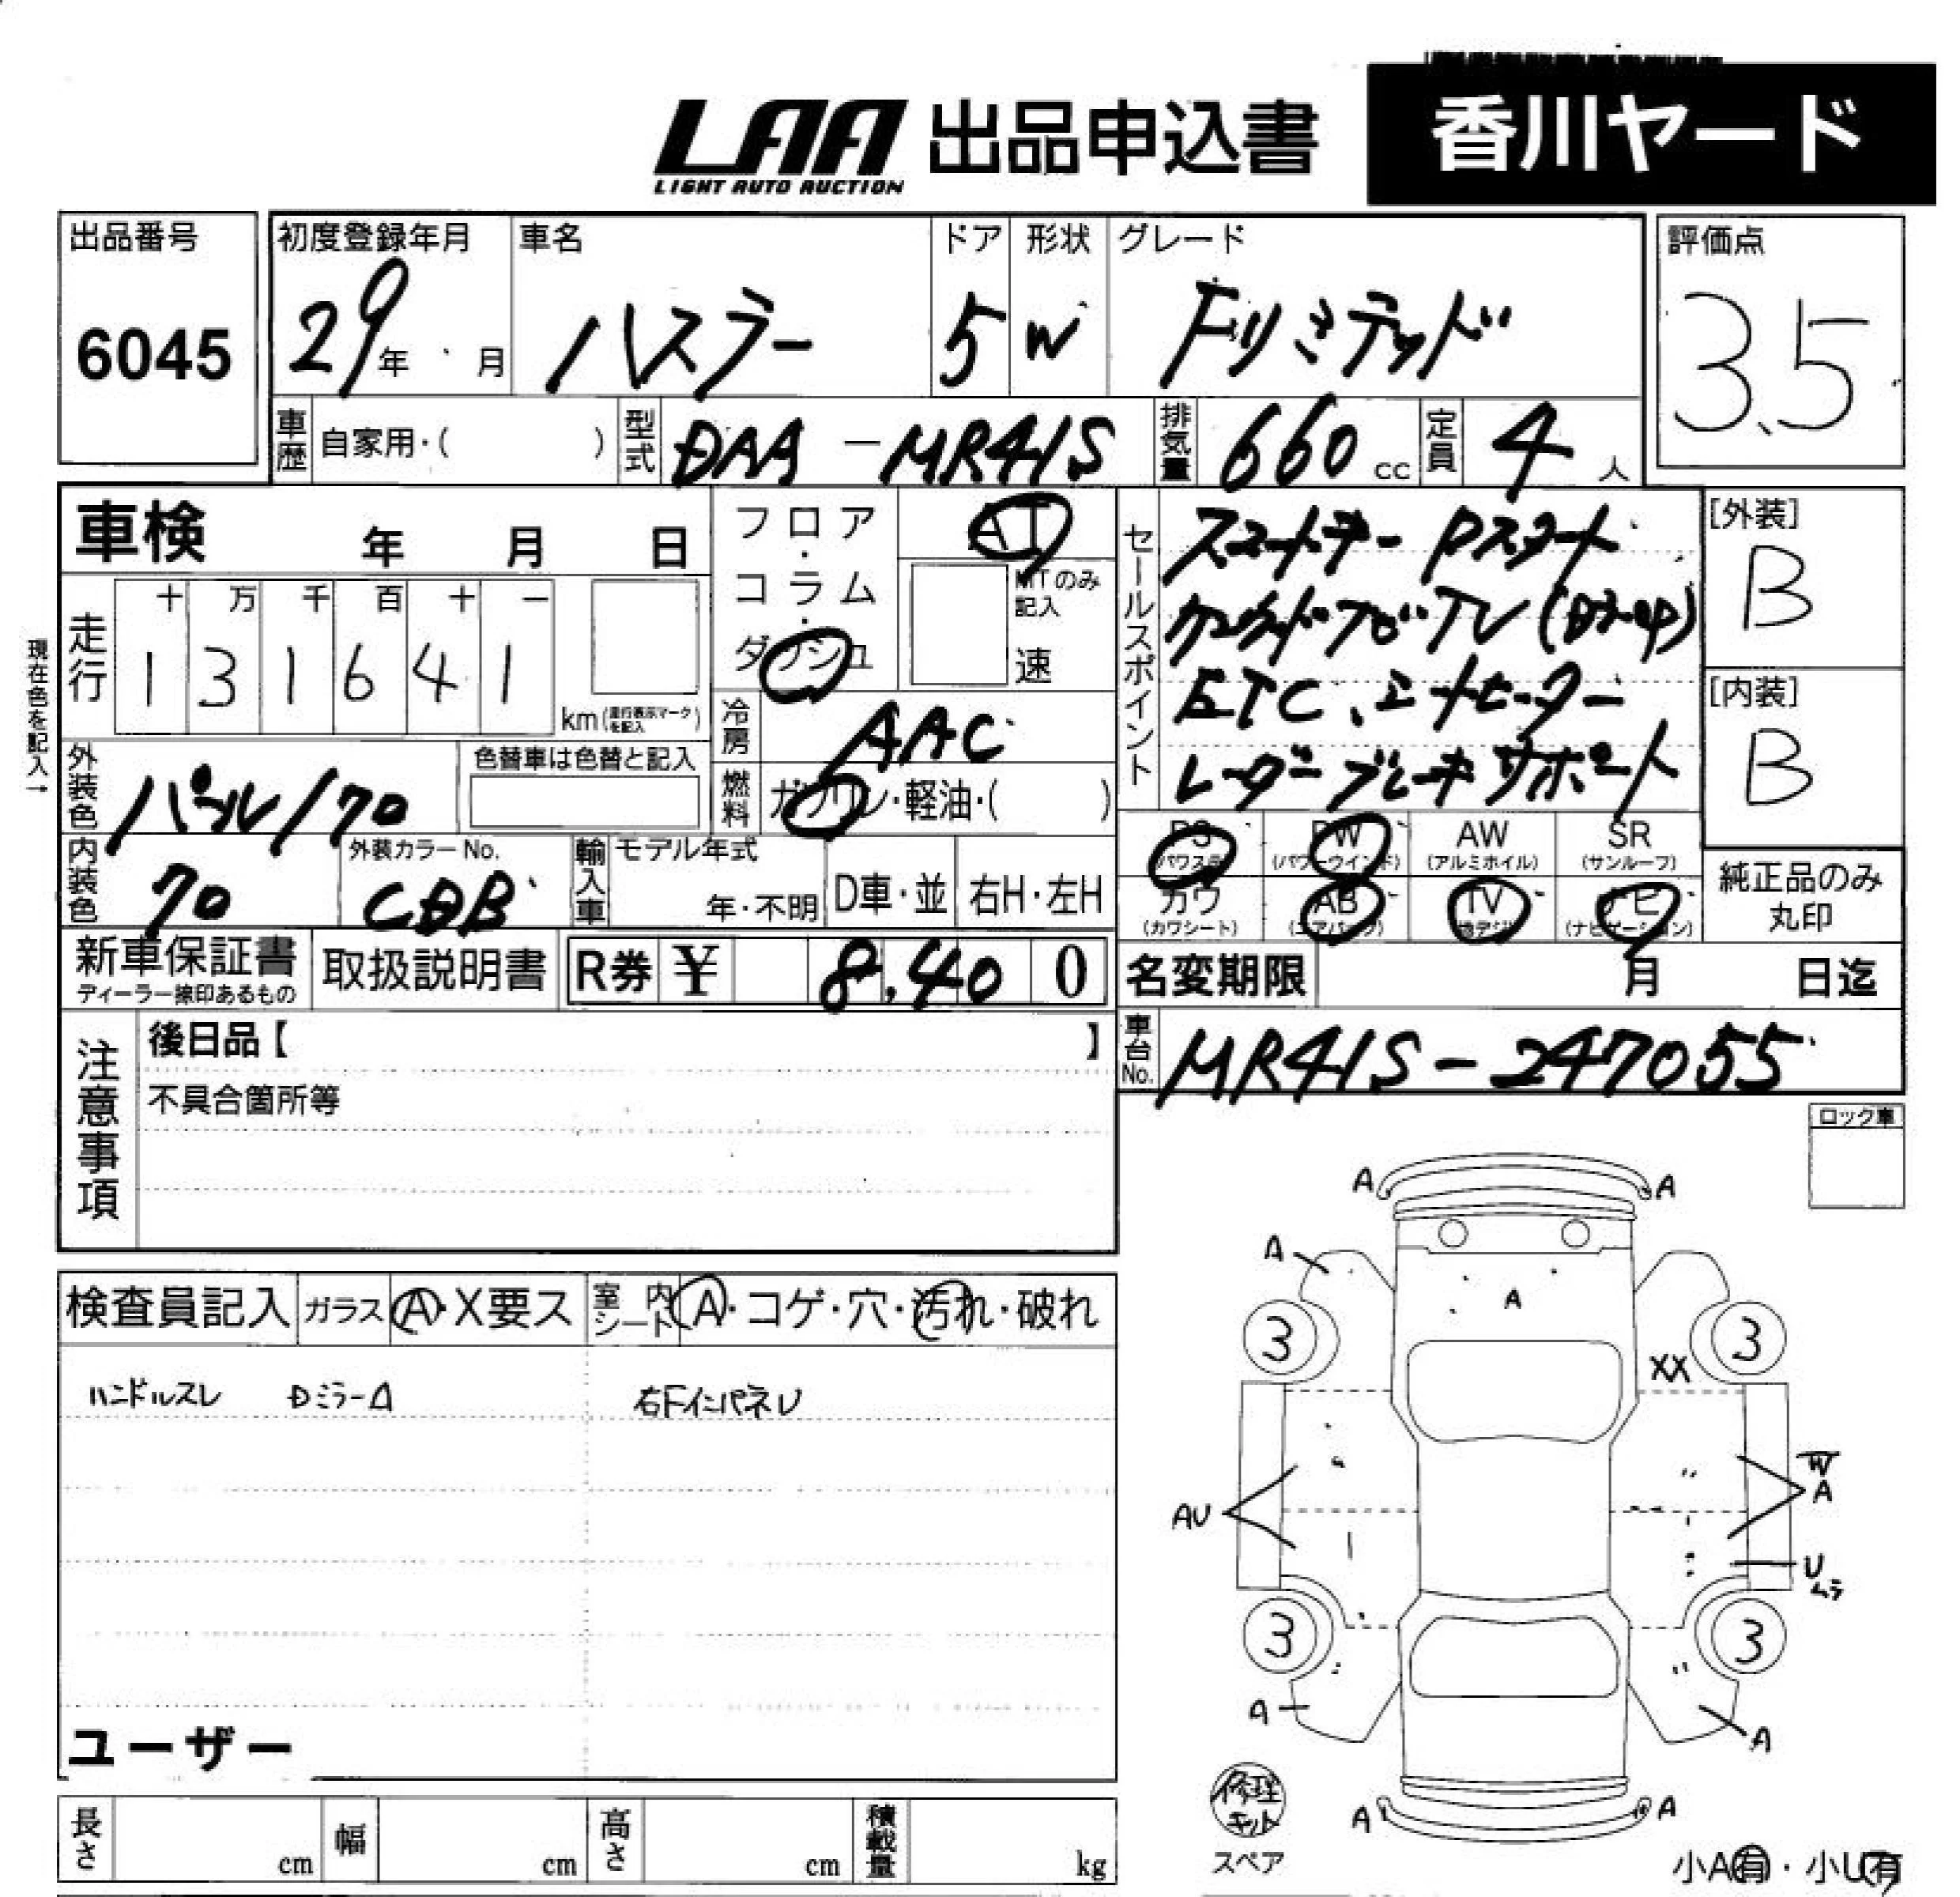 LAA 出品申込書 香川ヤード
LIGHT AUTO AUCTION
出品番号 初度登録年月 車名 ドア 形状 グレード 評価点
6045 29年 月 ハスラー 5 W Fリミテッド 3.5
車歴 自家用・( ) 型式 DAA-MR41S 排気量 660 cc 定員 4 人
車検 年 月 日 フロア・コラム・ダッシュ AT MTのみ記入 速
走行 十 万 千 百 十 一
1 3 1 6 4 1 km(走行表示マークを記入)
現在色を記入→
冷房 AAC
外装色 パール/クロ 色替車は色替と記入 燃料 ガソリン・軽油・( )
内装色 クロ 外装カラーNo. CDB 輸入車 モデル年式 年・不明 D車・並 右H・左H
セールスポイント
スマートキー Pスタート
TV
ETC、シートヒーター
レーダーブレーキサポート
[外装]
B
[内装]
B
PS (パワステ) PW (パワーウインド) AW (アルミホイル) SR (サンルーフ)
カワ (カワシート) AB (エアバッグ) TV (地デジ) ナビ (ナビゲーション)
純正品のみ
丸印
新車保証書 取扱説明書 R券 ¥ 8,400 名変期限 月 日迄
ディーラー捺印あるもの
注意事項 後日品【 】
不具合箇所等
車台No. MR41S-247055
ロック車
検査員記入 ガラス A・X要ス 室内シート A・コゲ・穴・汚れ・破れ
ハンドルスレ DミラーA 右FインパネU
A A
A A
3 3
XX
AU W A
U ムラ
3 3
A A
A A
ユーザー
修理キット
スペア 小A有・小U有
長さ cm 幅 cm 高さ cm 積載量 kg